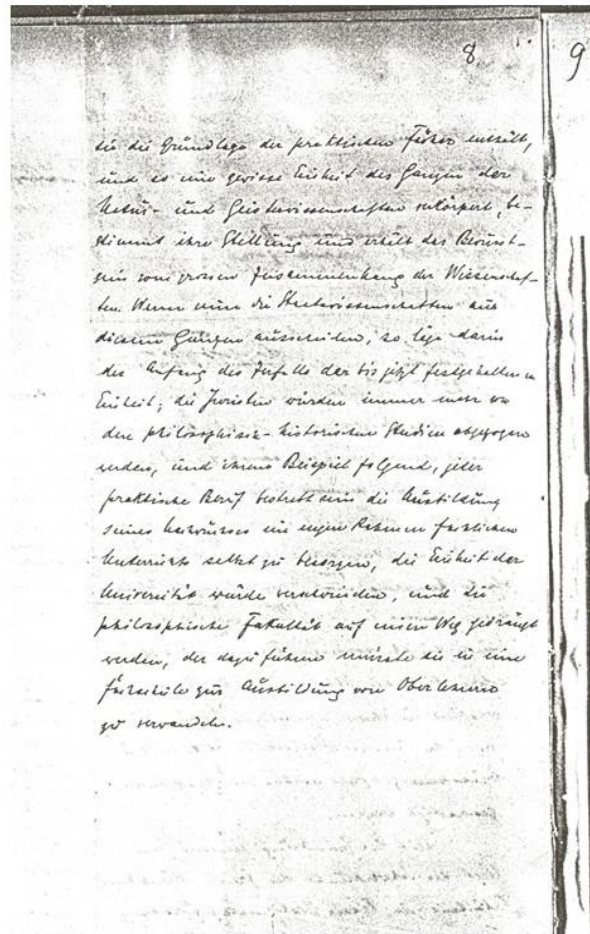 8
9
sie die Grundlage der praktischen Fächer enthält,
und so eine gewisse Einheit des Ganzen der
Natur- und Geisteswissenschaften verkörpert, be-
stimmt ihre Stellung und erhält das Bewusst-
sein vom grossen Zusammenhang der Wissenschaf-
ten. Wenn nun die Staatswissenschaften aus
diesem Ganzen ausscheiden, so läge darin
der Anfang des Zerfalls der bis jetzt festgehaltenen
Einheit; die Juristen würden immer mehr von
den philosophisch-historischen Studien abgezogen
werden, und ihrem Beispiel folgend, jeder
praktische Beruf bestrebt sein die Ausbildung
seines Nachwuchses im engen Rahmen fachlichen
Unterrichts selbst zu besorgen, die Einheit der
Universität würde verschwinden, und die
philosophische Fakultät auf einen Weg gedrängt
werden, der dazu führen müsste sie in eine
Fachschule zur Ausbildung von Oberlehrern
zu verwandeln.